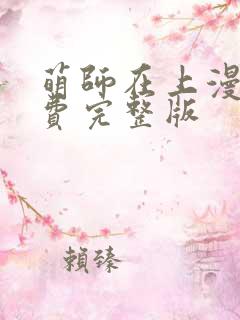 萌師在上漫
費完整版
賴臻